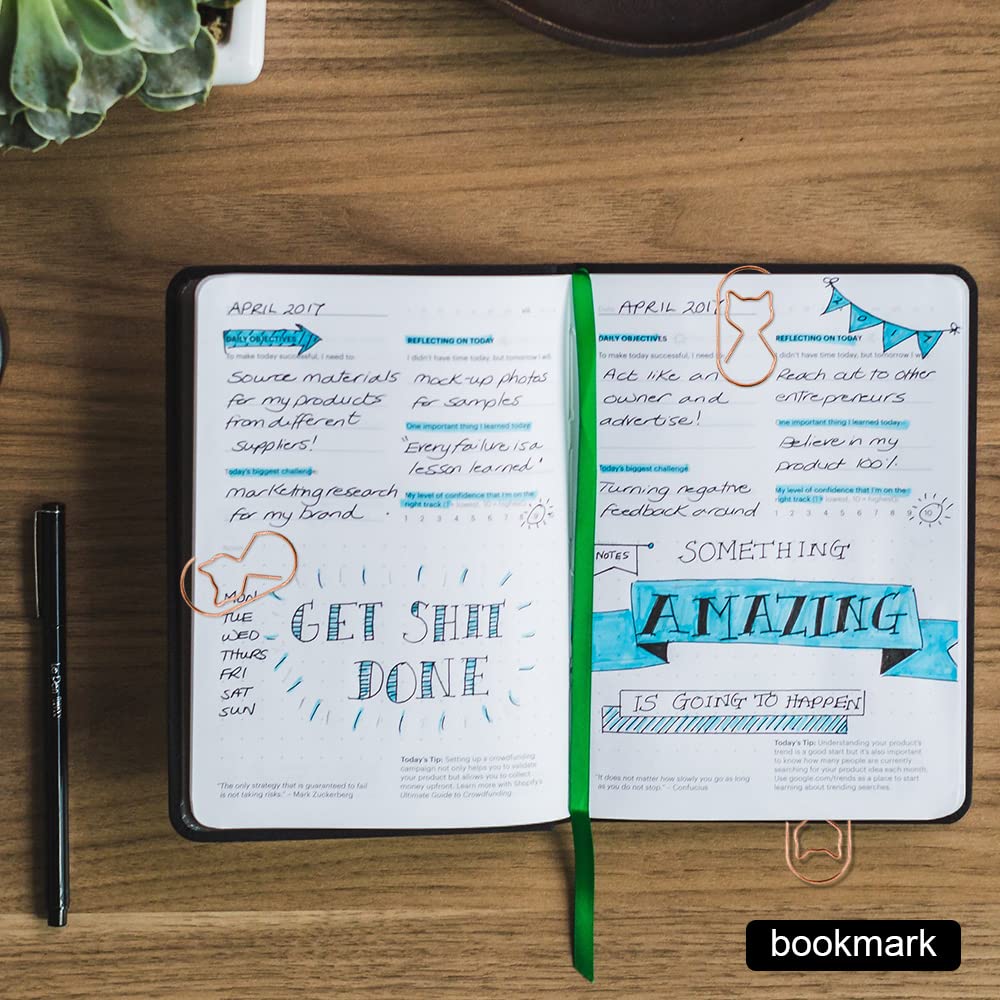 APRIL 2017
DAILY OBJECTIVES
To make today successful, I need to:
Source materials
for my products
from different
suppliers!
Today's biggest challenge
marketing research
for my brand.
REFLECTING ON TODAY
I didn't have time today, but tomorrow I wi
mock-up photos
for samples
One important thing I learned today
"Every failure is a
lesson learned"
My level of confidence that I'm on the
right track (1 = lowest, 10 = highest)
1 2 3 4 5 6 7 8 9
MON
TUE
WED
THURS
FRI
SAT
SUN
GET SHIT
DONE
"The only strategy that is guaranteed to fail
is not taking risks." – Mark Zuckerberg
Today's Tip: Setting up a crowdfunding
campaign not only helps you to validate
your product but allows you to collect
money upfront. Learn more with Shopify's
Ultimate Guide to Crowdfunding.
APRIL 2017
DAILY OBJECTIVES
To make today successful, I need
Act like an
owner and
advertise!
Today's biggest challenge
Turning negative
feedback around
REFLECTING ON TODAY
I didn't have time today, but tomorrow I w
Reach out to other
entrepreneurs
One important thing I learned today
Believe in my
product 100%.
My level of confidence that I'm on the
right track (1 = lowest, 10 = highest)
1 2 3 4 5 6 7 8 9 10
NOTES
SOMETHING
AMAZING
IS GOING TO HAPPEN
"It does not matter how slowly you go as long
as you do not stop." – Confucius
Today's Tip: Understanding your product's
trend is a good start but it's also important
to know how many people are currently
searching for your product idea each month.
Use google.com/trends as a place to start
learning about trending searches.
bookmark